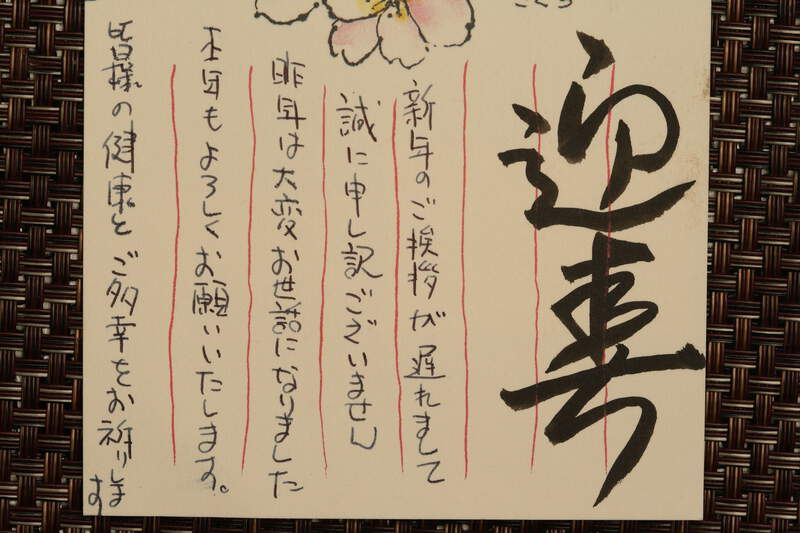 さくら
迎春
新年のご挨拶が遅れまして
誠に申し訳ございません
昨年は大変お世話になりました
本年もよろしくお願いいたします。
皆様の健康とご多幸をお祈りします